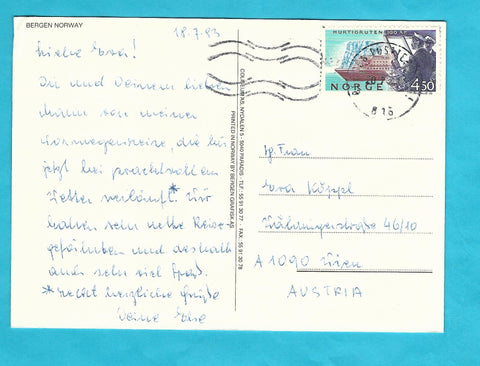 BERGEN NORWAY
18.7.93
Liebe Dora!
Dir und Deinem lieben
Mann von meiner
Norwegenreise, die bis
jetzt bei prachtvollem
Wetter verläuft* Wir
haben sehr nette Reise-
gefährten und deshalb
auch sehr viel Spaß.
*recht herzliche Grüße
Deine
COURIELUM AS, NYGÅLEN 5 - 5040 PARADIS - TLF.: 55 91 30 77 - FAX: 55 91 30 78
PRINTED IN NORWAY BY BERGEN GRAFISK AS
HURTIGRUTEN 100 ÅR
NORGE 450
816
Frau
Dora
46/10
A 1090 Wien
AUSTRIA